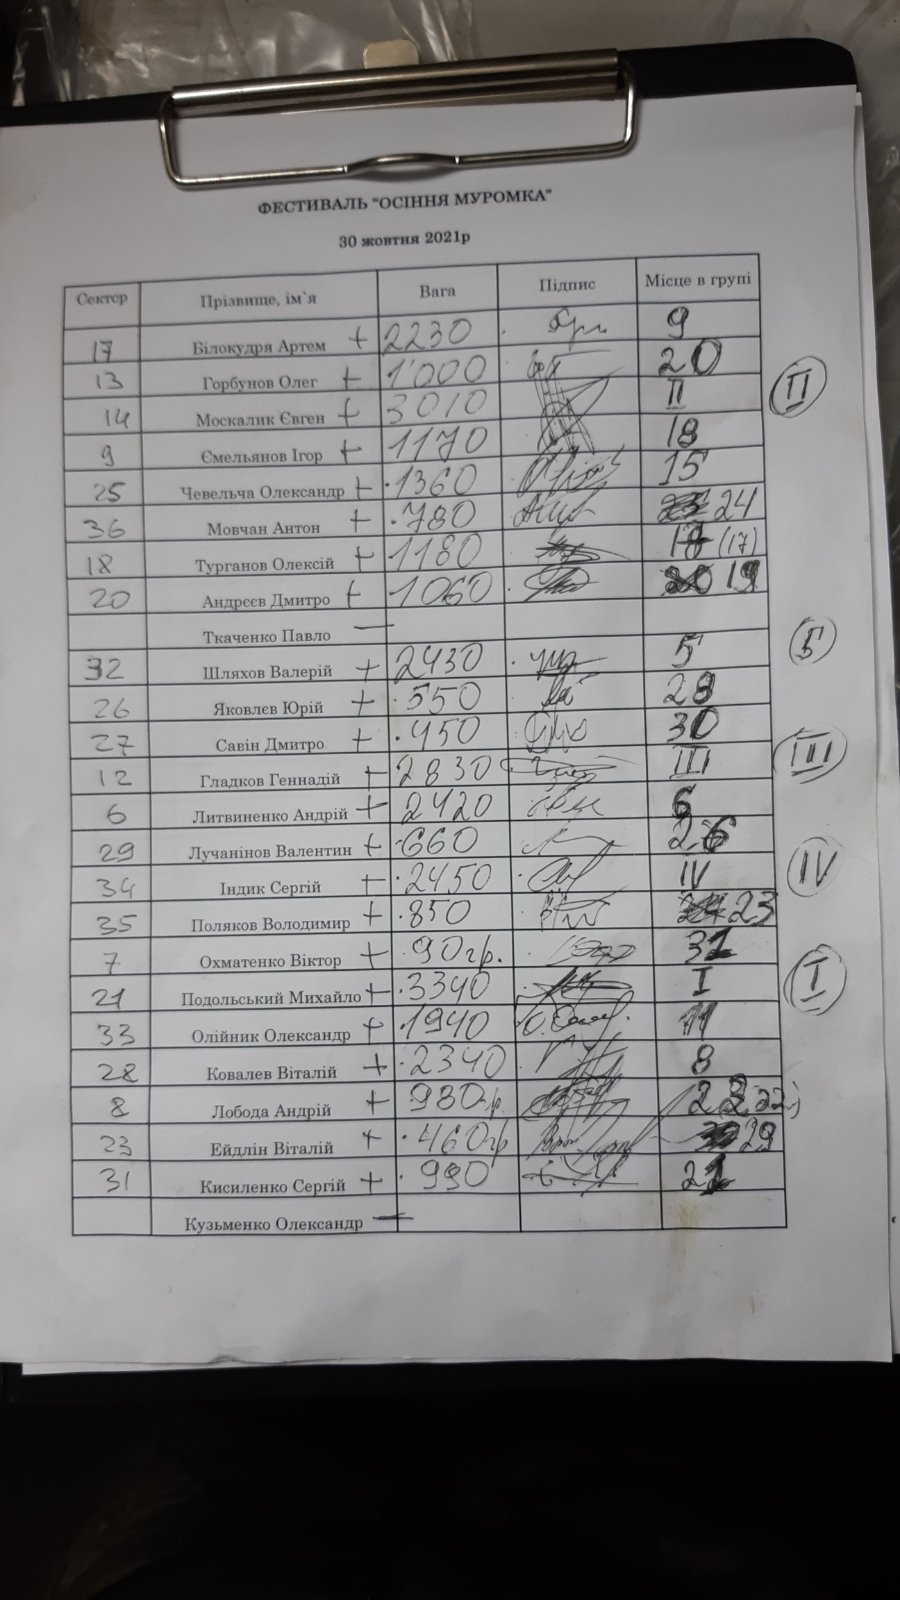 ФЕСТИВАЛЬ "ОСІННЯ МУРОМКА"
30 жовтня 2021р
Сектор Прізвище, ім`я Вага Підпис Місце в групі
17 Білокудря Артем + 2230 9
13 Горбунов Олег + 1'000 20
14 Москалик Євген + 3010 II (II)
9 Ємельянов Ігор + 1170 18
25 Чевельча Олександр + 1360 15
36 Мовчан Антон + 780 24
18 Турганов Олексій + 1180 17 (17)
20 Андрєєв Дмитро + 1060 19
Ткаченко Павло —
32 Шляхов Валерій + 2430 5 (5)
26 Яковлєв Юрій + 550 28
27 Савін Дмитро + 450 30
12 Гладков Геннадій + 2830 III (III)
6 Литвиненко Андрій + 2420 6
29 Лучанінов Валентин + 660 26
34 Індик Сергій + 2450 IV (IV)
35 Поляков Володимир + 850 23
7 Охматенко Віктор + 90гр. 31
21 Подольський Михайло + 3340 I (I)
33 Олійник Олександр + 1940 11
28 Ковалев Віталій + 2340 8
8 Лобода Андрій + 980гр. 22 (22)
23 Ейдлін Віталій + 460гр 29
31 Кисиленко Сергій + 990 21
Кузьменко Олександр —